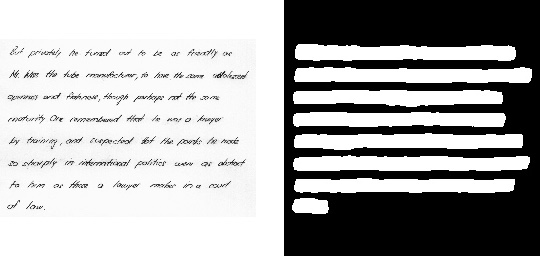 But privately he turned out to be as friendly as
Mr. the tube manufacturer, to have the same
openness and freshness, though perhaps not the same
maturity. One remembered that he was a lawyer
by training, and suspected that the points he made
so sharply in international politics were as abstract
to him as those a lawyer makes in a court
of law.